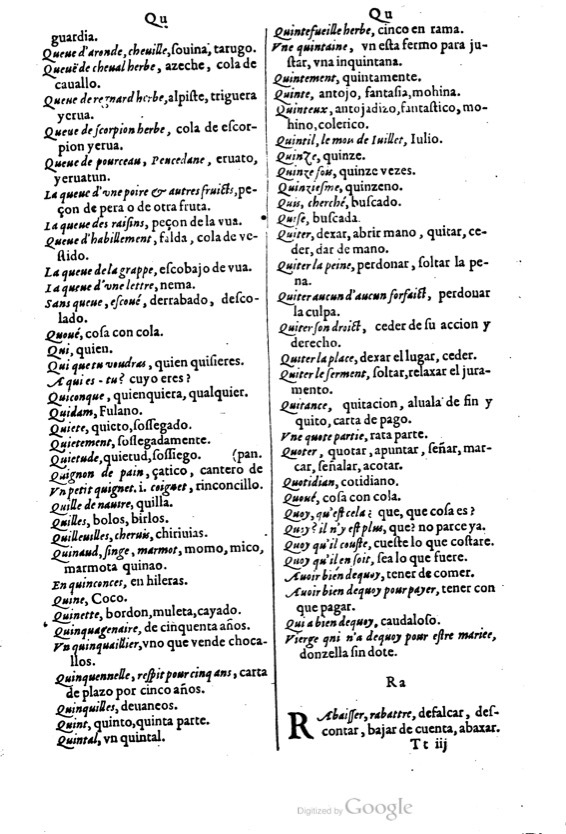 Qu
guardia.
Queue d'aronde, cheuille, ſouina, tarugo.
Queuë de cheual herbe, azeche, cola de
cauallo.
Queue de regnard herbe, alpiſte, triguera
yerua.
Queue de ſcorpion herbe, cola de eſcor-
pion yerua.
Queue de pourceau, Pencedane, eruato,
yeruatun.
La queue d'vne poire & autres fruicts, pe-
çon de pera o de otra fruta.
La queue des raiſins, peçon de la vua.
Queue d'habillement, falda, cola de ve-
ſtido.
La queue de la grappe, eſcobajo de vua.
La queue d'vne lettre, nema.
Sans queue, eſcoué, derrabado, deſco-
lado.
Quoué, coſa con cola.
Qui, quien.
Qui que tu voudras, quien quiſieres.
A qui es-tu? cuyo eres?
Quiconque, quienquiera, qualquier.
Quidam, Fulano.
Quiete, quieto, ſoſſegado.
Quietement, ſoſſegadamente.
Quietude, quietud, ſoſſiego. (pan.
Quignon de pain, çatico, cantero de
Vn petit quignet. i. coignet, rinconcillo.
Quille de nauire, quilla.
Quilles, bolos, birlos.
Quilleuilles, cheruis, chiriuias.
Quinaud, ſinge, marmot, momo, mico,
marmota quinao.
En quinconces, en hileras.
Quine, Coco.
Quinette, bordon, muleta, cayado.
Quinquagenaire, de cinquenta años.
Vn quinquaillier, vno que vende choca-
llos.
Quinquennelle, reſpit pour cinq ans, carta
de plazo por cinco años.
Quinquilles, deuaneos.
Quint, quinto, quinta parte.
Quintal, vn quintal.
Qu
Quintefueille herbe, cinco en rama.
Vne quintaine, vn eſta fermo para ju-
ſtar, vna inquintana.
Quintement, quintamente.
Quinte, antojo, fantaſia, mohina.
Quinteux, antojadizo, fantaſtico, mo-
hino, colerico.
Quintil, le mou de Iuillet, Iulio.
Quinze, quinze.
Quinze fou, quinze vezes.
Quinzieſme, quinzeno.
Quis, cherché, buſcado.
Quiſe, buſcada.
Quiter, dexar, abrir mano, quitar, ce-
der, dar de mano.
Quiter la peine, perdonar, ſoltar la pe-
na.
Quiter aucun d'aucun forfaict, perdouar
la culpa.
Quiter ſon droict, ceder de ſu accion y
derecho.
Quiter la place, dexar el lugar, ceder.
Quiter le ſerment, ſoltar, relaxar el jura-
mento.
Quitance, quitacion, aluala de fin y
quito, carta de pago.
Vne quote partie, rata parte.
Quoter, quotar, apuntar, ſeñar, mar-
car, ſeñalar, acotar.
Quotidian, cotidiano.
Quoué, coſa con cola.
Quoy, qu'eſt cela? que, que coſa es?
Quoy? il n'y eſt plus, que? no parce ya.
Quoy qu'il couſte, cueſte lo que coſtare.
Quoy qu'il en ſoit, ſea lo que fuere.
Auoir bien dequoy, tener de comer.
Auoir bien dequoy pour payer, tener con
que pagar.
Qui a bien dequoy, caudaloſo.
Vierge qni n'a dequoy pour eſtre mariée,
donzella ſin dote.
Ra
RAbaiſſer, rabattre, defalcar, deſ-
contar, bajar de cuenta, abaxar.
Tt iij
Digitized by Google